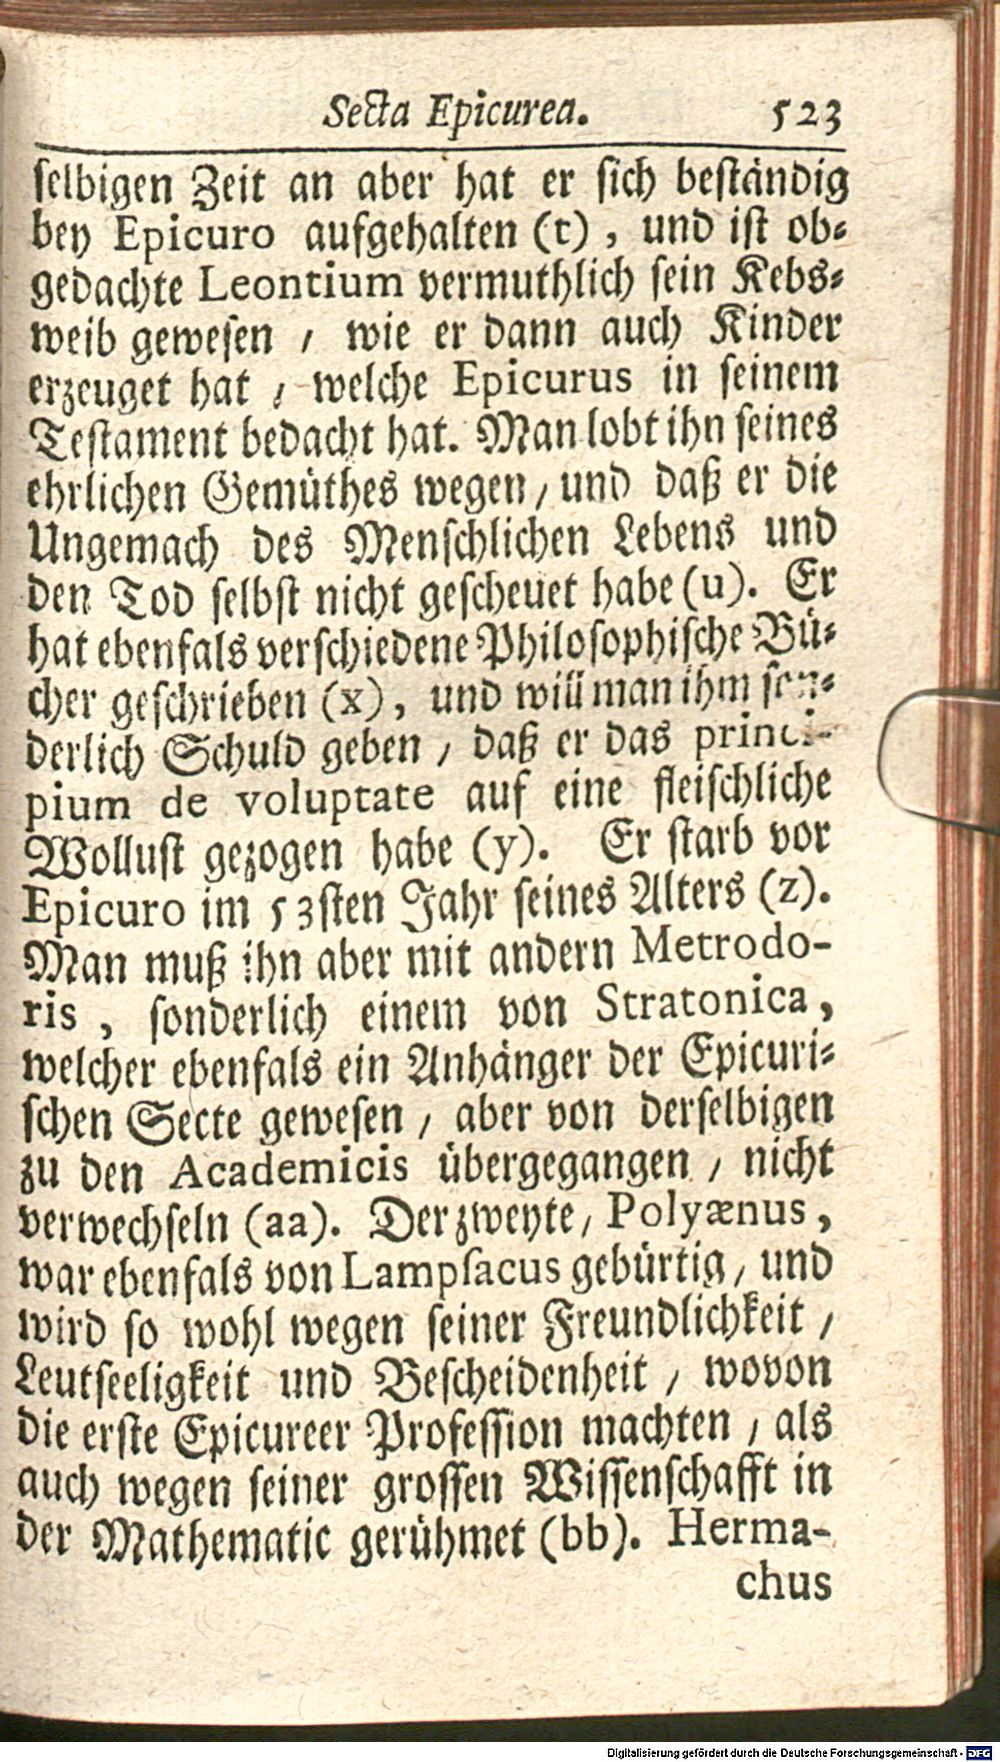 Secta Epicurea. 523
selbigen Zeit an aber hat er sich beständig
bey Epicuro aufgehalten (t), und ist ob-
gedachte Leontium vermuthlich sein Kebs-
weib gewesen / wie er dann auch Kinder
erzeuget hat / welche Epicurus in seinem
Testament bedacht hat. Man lobt ihn seines
ehrlichen Gemüthes wegen / und daß er die
Ungemach des Menschlichen Lebens und
den Tod selbst nicht gescheuet habe (u). Er
hat ebenfals verschiedene Philosophische Bü-
cher geschrieben (x), und will man ihm son-
derlich Schuld geben / daß er das princi-
pium de voluptate auf eine fleischliche
Wollust gezogen habe (y). Er starb vor
Epicuro im 53sten Jahr seines Alters (z).
Man muß ihn aber mit andern Metrodo-
ris, sonderlich einem von Stratonica,
welcher ebenfals ein Anhänger der Epicuri-
schen Secte gewesen / aber von derselbigen
zu den Academicis übergegangen / nicht
verwechseln (aa). Der zweyte / Polyænus,
war ebenfals von Lampsacus gebürtig / und
wird so wohl wegen seiner Freundlichkeit /
Leutseeligkeit und Bescheidenheit / wovon
die erste Epicureer Profession machten / als
auch wegen seiner grossen Wissenschafft in
der Mathematic gerühmet (bb). Herma-
chus
Digitalisierung gefördert durch die Deutsche Forschungsgemeinschaft - DFG